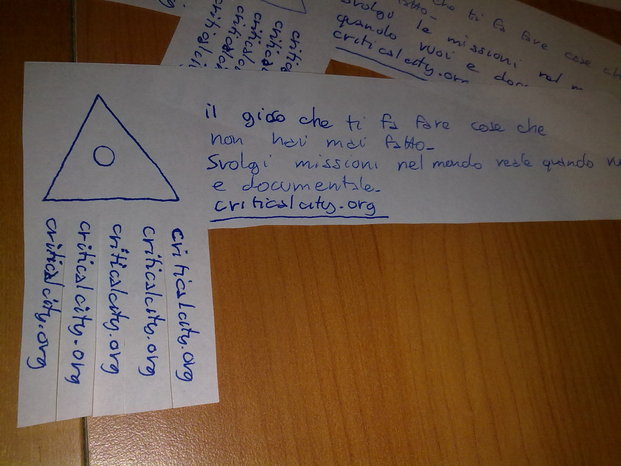 il gioco che ti fa fare cose che
non hai mai fatto-
Svolgi missioni nel mondo reale quando
e documentale.
criticalcity.org
criticalcity.org
criticalcity.org
criticalcity.org
criticalcity.org
criticalcity.org
che ti fa fare cose
fatto-
svolgi le missioni nel
quando vuoi e
criticalcity.org